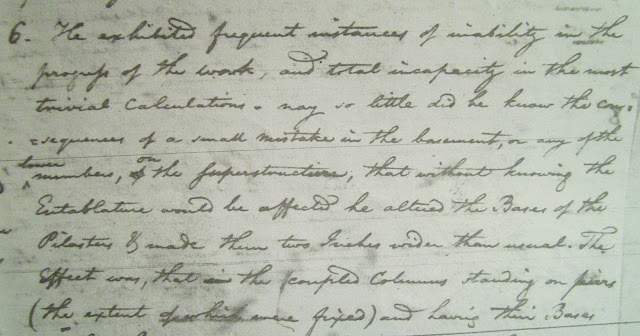 6. He exhibited frequent instances of inability in the
progress of the work, and total incapacity in the most
trivial Calculations. nay so little did he know the con=
=sequences of a small mistake in the basement, or any of the
lower
members, on the Superstructure, that without knowing the
Entablature would be affected he altered the Bases of the
Pilasters & made them two Inches wider than usual. The
Effect was, that in the coupled Columns standing on piers
(the extent of which were fixed) and having their Bases